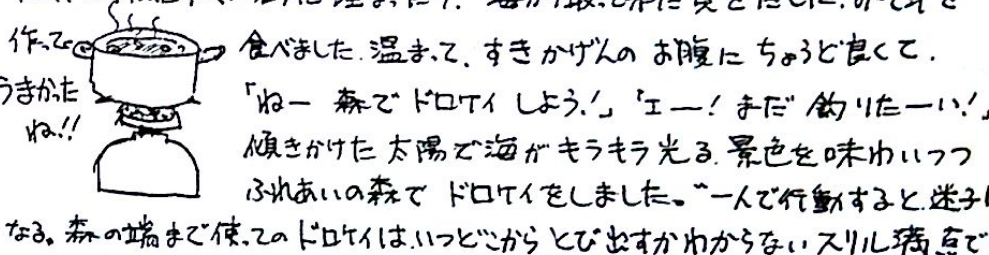 海から取って来た貝をだしに、みそ汁を
作って
食べました。温まって、すきかげんのお腹にちょうど良くて。
うまかった
ね!!
「ねー 森でドロケイしよう!」「エー!まだ釣りたーい!」
傾きかけた太陽で海がキラキラ光る景色を味わいつつ
ふれあいの森でドロケイをしました。“一人で行動すると、迷子に
なる。森の端まで使ってのドロケイは、いつどこからとび出すかわからないスリル満点で